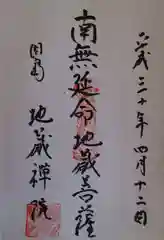 平成三十年四月十二日
南無延命地蔵菩薩
地蔵禅院